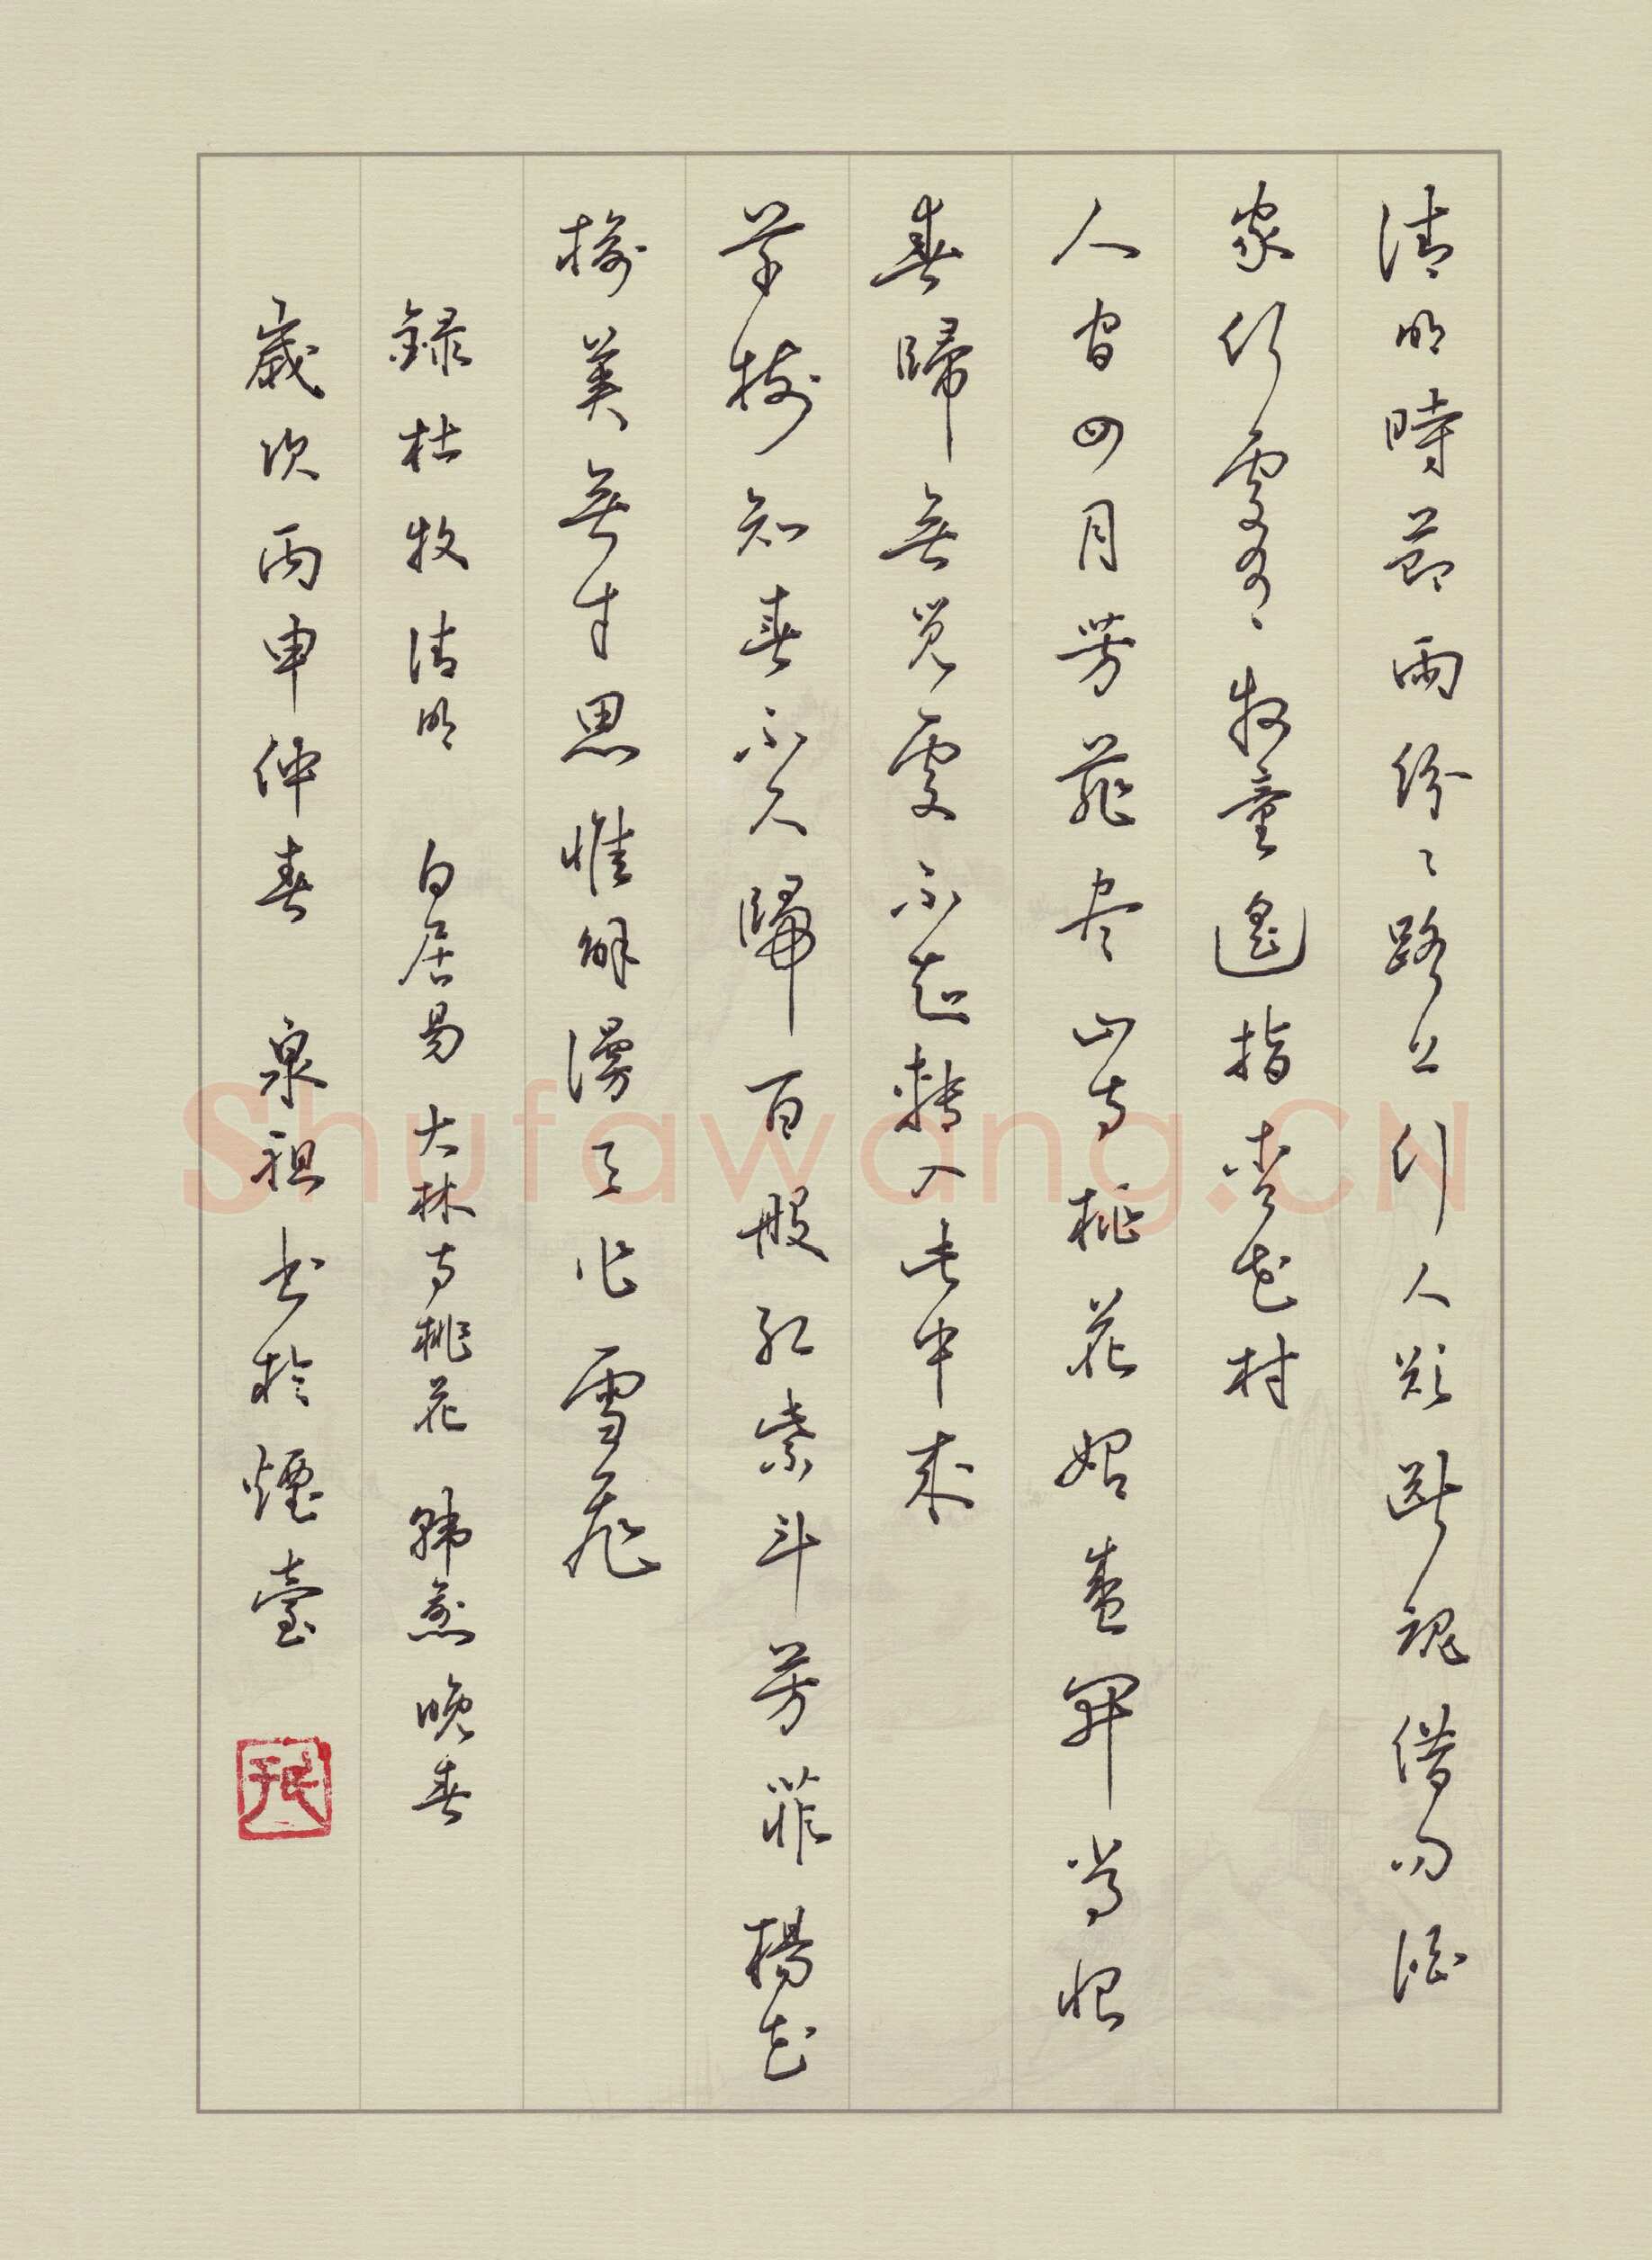 清明時節雨紛〻路上行人欲斷魂借問酒
家何處有牧童遙指杏花村
人間四月芳菲尽山寺桃花始盛開常恨
春歸無覓處不知轉入此中来
草樹知春不久歸百般紅紫斗芳菲楊花
榆莢無才思惟解漫天作雪飛
錄杜牧清明 白居易大林寺桃花 韓愈晚春
歲次丙申仲春 泉祖书於煙臺
Shufawang.CN